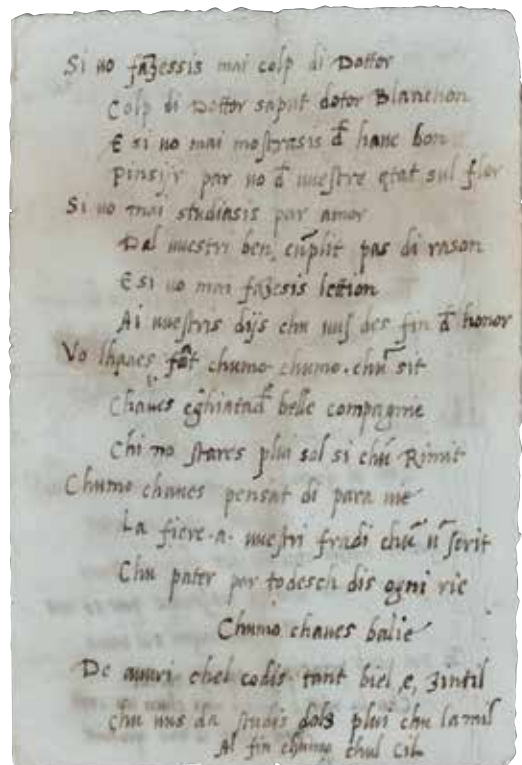 Si uo fazessis mai colp di Dottor
Colp di Dottor saput dotor Blanchon
E si uo mai mostrasis đ hauc bon
Pinsijr par uo đ uuestre etat sul flor
Si uo mai studiasis par amor
Dal uuestri ben, cũplit pas di rason
E si uo mai fazesis lettion
Ai uuestris dijs chu uus des fin đ honor
Vo lhaues fat chumo chumo. chũ sit
Chaues belle compagnie
Chi no stares plui sol si chũ Rimit
Chumo chaues pensat di para uie
La fiere .a. uuestri fradi chũ ũ serit
Chu pater par todesch dis ogni rie
Chumo chaues balie
De auuri chel codis tant biel, e, zintil
chu uus da studis dols plui chu la mil
Al fin chumo chul Cil